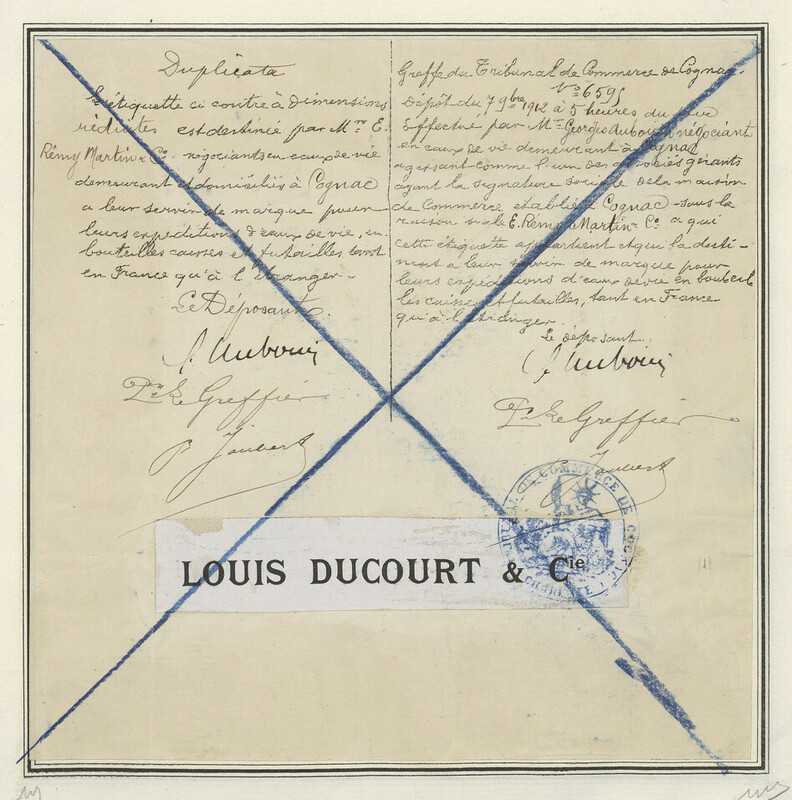 Duplicata
L'étiquette ci contre à dimensions
réduites est destinée par Mrs E.
Rémy Martin & Co négociants en eaux de vie
demeurant et domiciliés à Cognac
a leur servir de marque pour
leurs expéditions d'eaux de vie, en
bouteilles caisses et futailles tant
en France qu'à l'étranger.
Le Déposant.
G. Auboin
Pr Le Greffier
P Jaubert
Greffe du Tribunal de Commerce de Cognac.
No 659
Dépôt du 7 9bre 1912 à 5 heures du soir
Effectué par Mr Georges Auboin négociant
en eaux de vie demeurant à Cognac
agissant comme l'un des associés gérants
ayant la signature sociale de la maison
de Commerce établie à Cognac sous la
raison sociale E. Rémy Martin & Co a qui
cette étiquette appartient et qui la desti-
nent a leur servir de marque pour
leurs expéditions d'eaux de vie en bouteil
les caisses et futailles, tant en France
qu'à l'étranger.
Le déposant.
G. Auboin
Pr Le Greffier
Jaubert
LOUIS DUCOURT & Cie
COMMERCE DE COGNAC